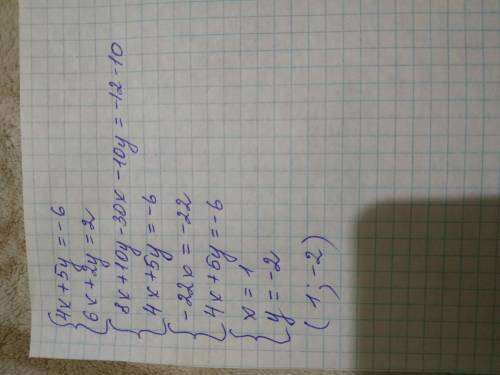 {4x+5y=-6
{6x+2y=2
{8x+10y-30x-10y=-12-10
{4x+5y=-6
{-22x=-22
{4x+5y=-6
{x=1
{y=-2
(1;-2)